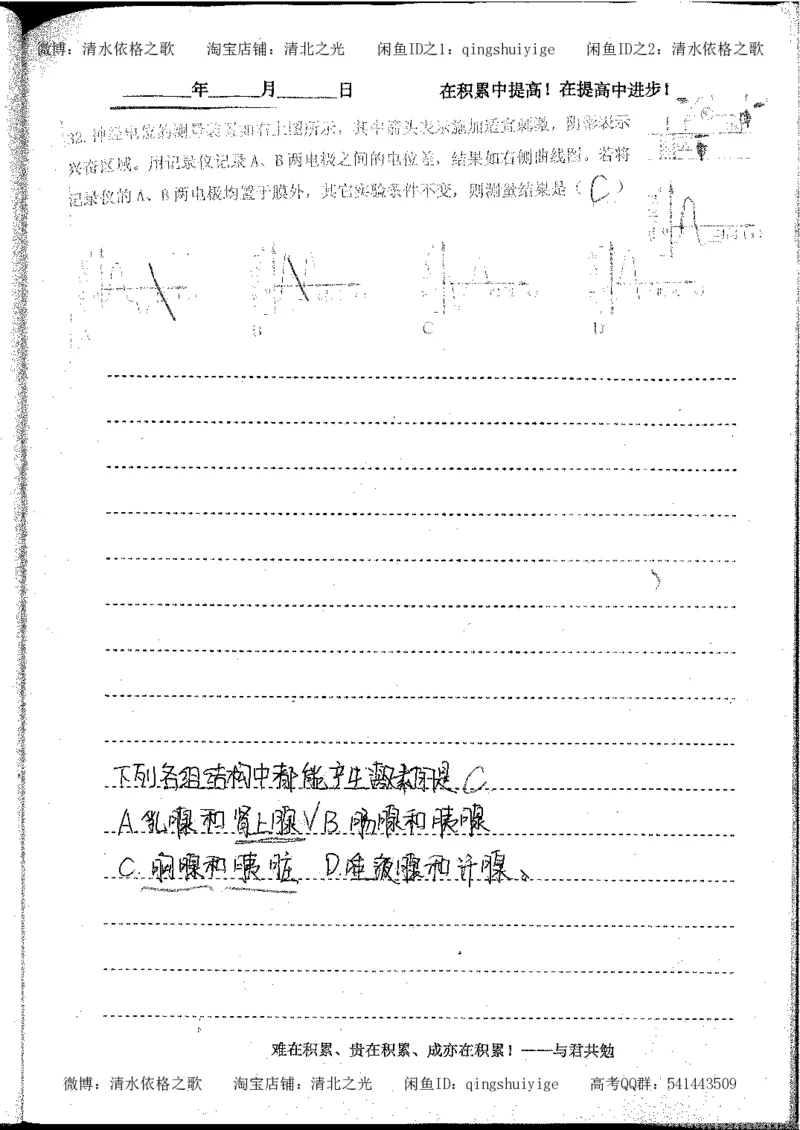 微博：清水依格之歌 淘宝店铺：清北之光 闲鱼ID之1：qingshuiyige 闲鱼ID之2：清水依格之歌
______年______月______日 在积累中提高！在提高中进步！
32. 神经电位的测量装置如右上图所示，其中箭头表示施加适宜刺激，阴影表示
兴奋区域。用记录仪记录 A、B 两电极之间的电位差，结果如右侧曲线图。若将
记录仪的 A、B 两电极均置于膜外，其它实验条件不变，则测量结果是（ C ）
A B C D
下列各组结构中都能产生激素的是 C
A. 乳腺和肾上腺 √ B. 肠腺和胰腺
C. 胸腺和胰脏 D. 唾液腺和汗腺。
难在积累、贵在积累、成亦在积累！——与君共勉
微博：清水依格之歌 淘宝店铺：清北之光 闲鱼ID：qingshuiyige 高考QQ群：541443509